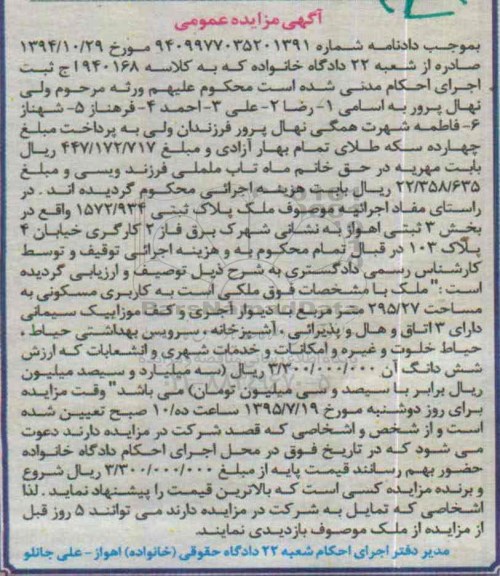 آگهی مزایده عمومی
بموجب دادنامه شماره ۹۴۰۹۹۷۷۰۳۵۲۰۱۳۹۱ مورخ ۱۳۹۴/۱۰/۲۹
صادره از شعبه ۲۲ دادگاه خانواده که به کلاسه ۹۴۰۱۶۸ اج ثبت
اجرای احکام مدنی شده است محکوم علیهم ورثه مرحوم ولی
نهال پرور به اسامی ۱- رضا ۲-علی ۳-احمد ۴- فرهناز ۵- شهناز
۶- فاطمه شهرت همگی نهال پرور فرزندان ولی به پرداخت مبلغ
چهارده سکه طلای تمام بهار آزادی و مبلغ ۴۴۷/۱۷۲/۷۱۷ ریال
بابت مهریه در حق خانم ماه تاب ململی فرزند ویسی و مبلغ
۲۲/۳۵۸/۶۳۵ ریال بابت هزینه اجرائی محکوم گردیده اند . در
راستای مفاد اجرائیه موصوف ملک پلاک ثبتی ۱۵۷۲/۹۳۴ واقع در
بخش ۳ ثبتی اهواز به نشانی شهرک برق فاز ۲ کارگری خیابان ۴
پلاک ۱۰۳ در قبال تمام محکوم به و هزینه اجرائی توقیف و توسط
کارشناس رسمی دادگستری به شرح ذیل توصیف و ارزیابی گردیده
است : "ملک با مشخصات فوق ملکی است به کاربری مسکونی به
مساحت ۲۹۵/۲۷ متر مربع با دیوار آجری و کف موزاییک سیمانی
دارای ۳ اتاق و هال و پذیرائی . آشپزخانه . سرویس بهداشتی حیاط .
حیاط خلوت و غیره و امکانات و خدمات شهری و انشعابات که ارزش
شش دانگ آن ۳/۳۰۰/۰۰۰/۰۰۰ ریال (سه میلیارد و سیصد میلیون
ریال برابر با سیصد و سی میلیون تومان) می باشد" وقت مزایده
برای روز دوشنبه مورخ ۱۳۹۵/۷/۱۹ ساعت ده/۱۰ صبح تعیین شده
است و از شخص و اشخاصی که قصد شرکت در مزایده دارند دعوت
می شود که در تاریخ فوق در محل اجرای احکام دادگاه خانواده
حضور بهم رسانند قیمت پایه از مبلغ ۳/۳۰۰/۰۰۰/۰۰۰ ریال شروع
و برنده مزایده کسی است که بالاترین قیمت را پیشنهاد نماید . لذا
اشخاصی که تمایل به شرکت در مزایده دارند می توانند ۵ روز قبل
از مزایده از ملک موصوف بازدیدی نمایند.
مدیر دفتر اجرای احکام شعبه ۲۲ دادگاه حقوقی (خانواده) اهواز - علی جانلو